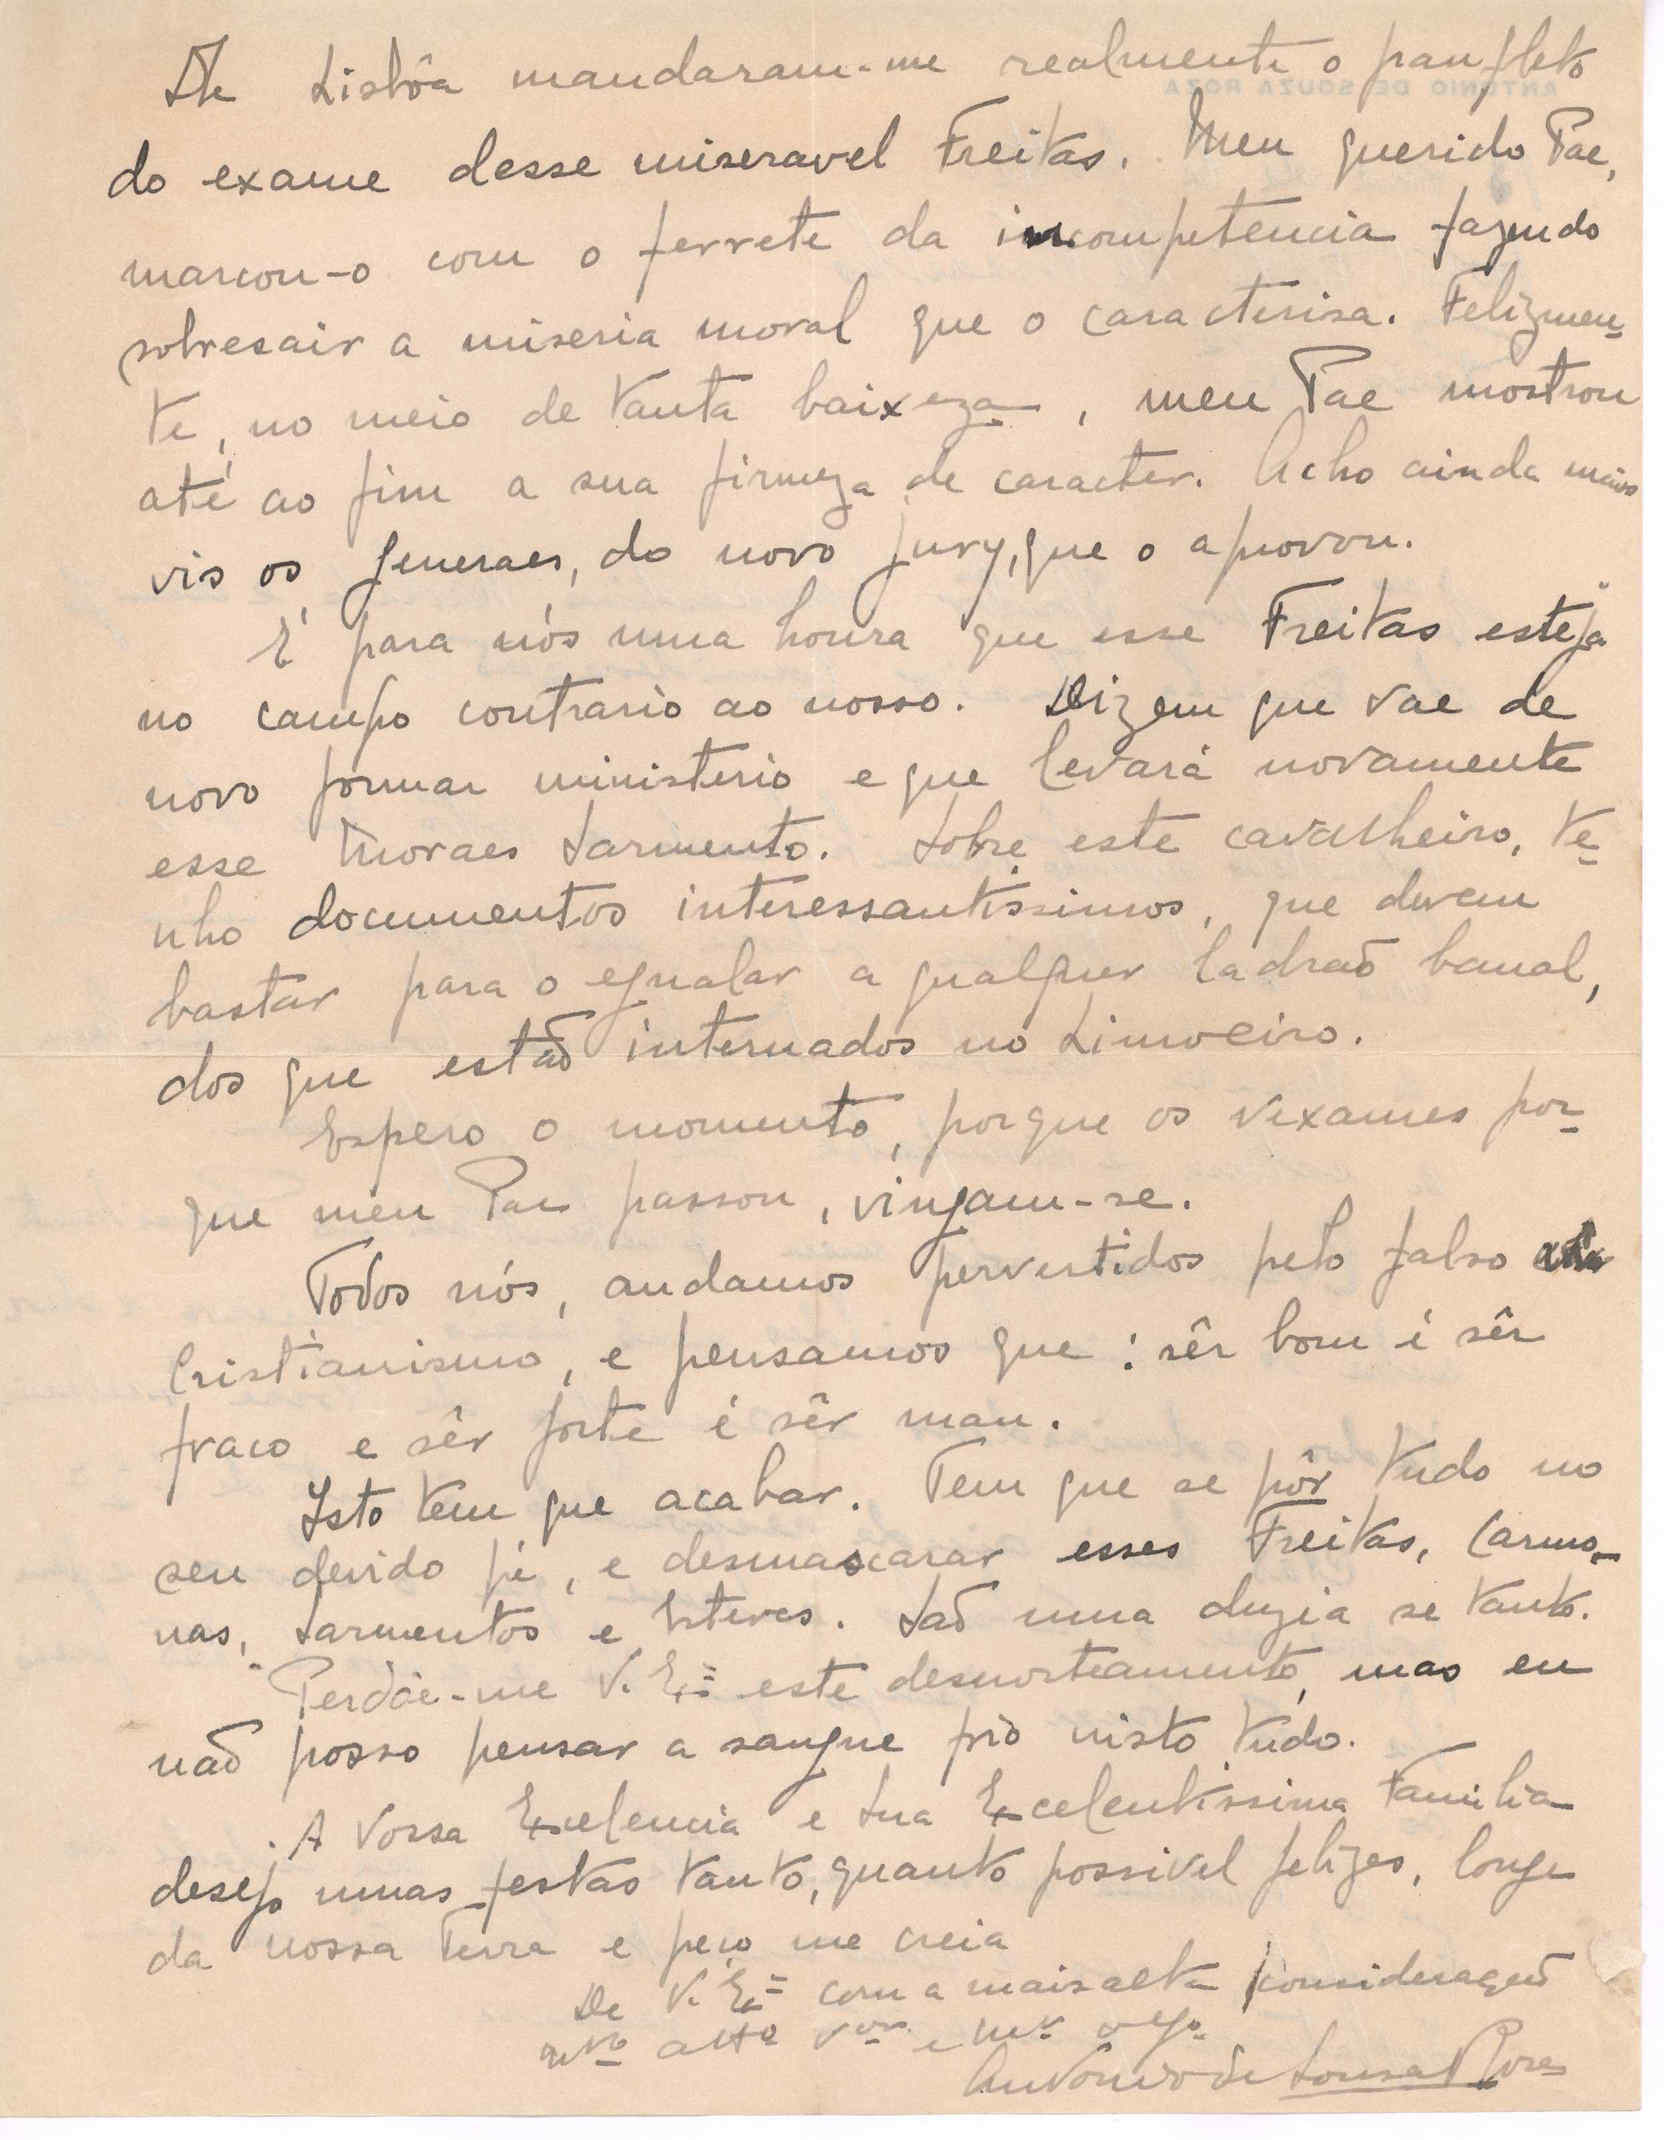 De Lisbôa mandaram-me realmente o panfleto
ANTONIO DE SOUZA ROZA
do exame desse miseravel Freitas. Meu querido Pae,
marcou-o com o ferrete da incompetencia fazendo
sobresair a miseria moral que o caracterisa. Felizmen-
te, no meio de tanta baixeza, meu Pae mostrou
até ao fim a sua firmeza de caracter. Acho ainda mais
vis os generaes, do novo jury, que o aprovou.
É para nós uma honra que esse Freitas esteja
no campo contrario ao nosso. Dizem que vae de
novo formar ministerio e que levará novamente
esse Moraes Sarmento. Sobre este cavalheiro, te-
nho documentos interessantissimos, que devem
bastar para o egualar a qualquer ladraõ banal,
dos que estaõ internados no Limoeiro.
Espero o momento, porque os vexames por-
que meu Pae passou, vingam-se.
Todos nós, andamos pervertidos pelo falso
Cristianismo, e pensamos que: sêr bom é sêr
fraco e sêr forte é sêr mau.
Isto tem que acabar. Tem que se pôr tudo no
seu devido pé, e desmascarar esses Freitas, Carmo-
nas, Sarmentos e Esteves. Saõ uma duzia se tanto.
Perdôe-me V. Exª este desnorteamento, mas eu
naõ posso pensar a sangue frio nisto tudo.
A Vossa Excelencia e Sua Excelentissima Familia
desejo umas festas tanto, quanto possivel felizes, longe
da nossa Terra e peço me creia
De V. Exª com a mais alta consideraçaõ
mtº attº vor e
Antonio de Sousa Rosa